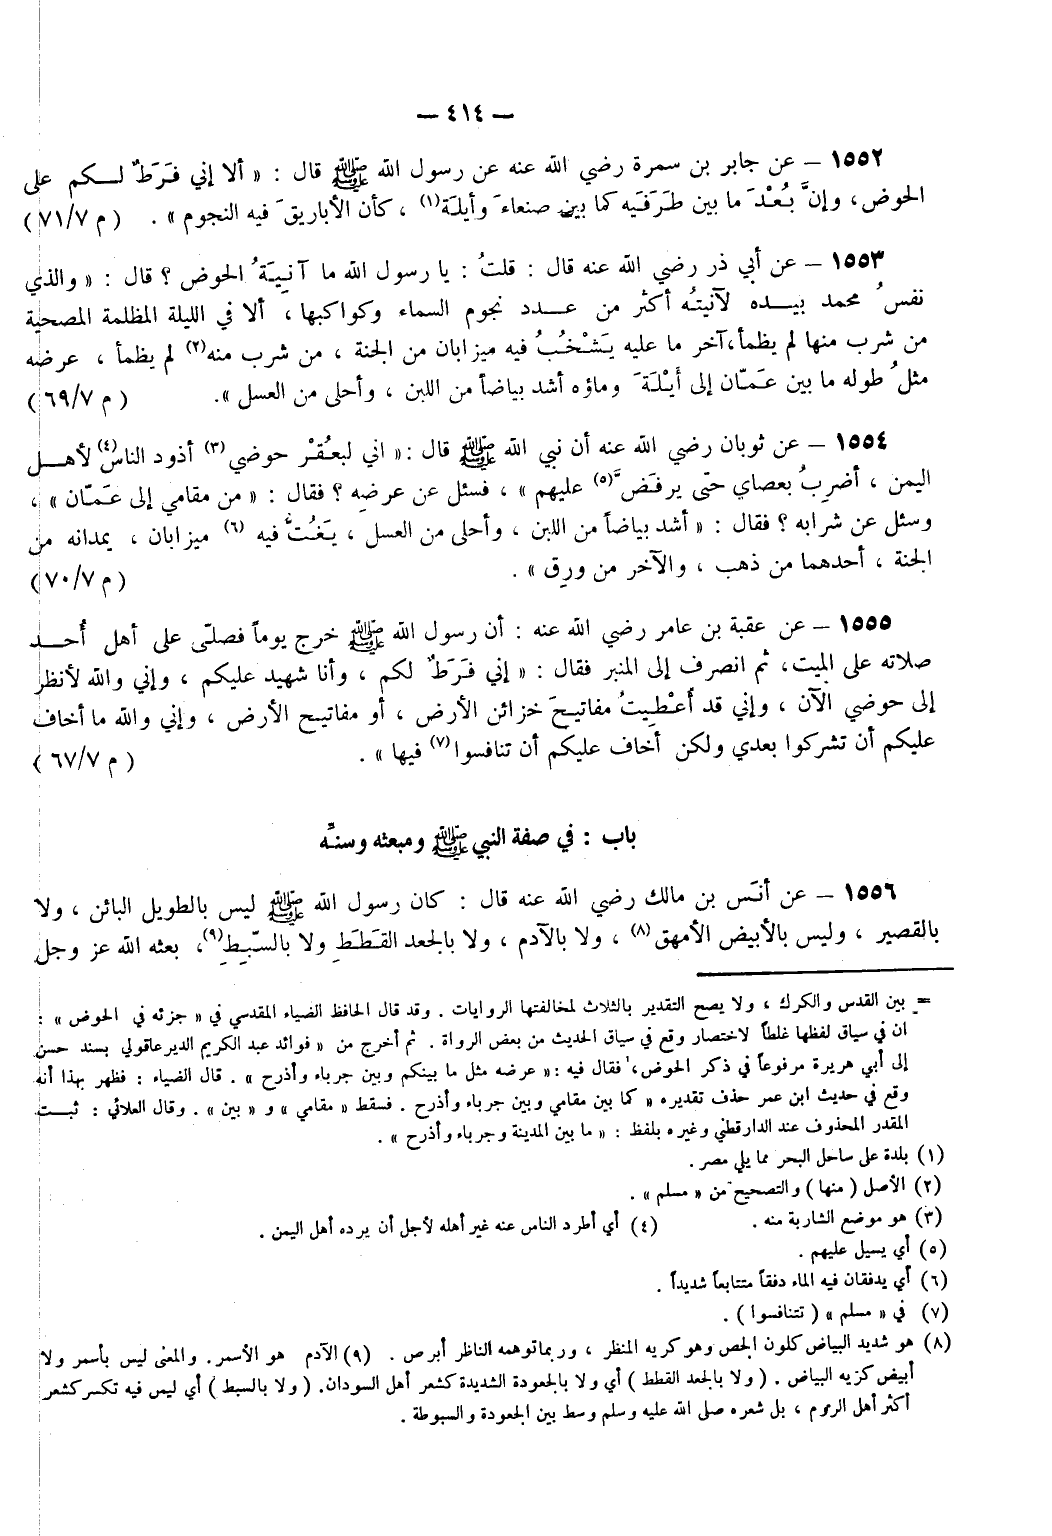 — ٤١٤ —
١٥٥٢ – عن جابر بن سمرة رضي الله عنه عن رسول الله ﷺ قال : « ألا إني فَرَطٌ لـكم على
الحوض، وإنَّ بُعْدَ ما بين طَرَفَيه كما بين صنعاءَ وأيلة(١) ، كأن الأباريقَ فيه النجوم » . ( م ٧١/٧ )
١٥٥٣ – عن أبي ذر رضي الله عنه قال : قلتُ : يا رسول الله ما آنِيَةُ الحوض ؟ قال : « والذي
نفسُ محمد بيـــده لآنيتُه أكثر من عـــدد نجوم السماء وكواكبها ، ألا في الليلة المظلمة المصحية
من شرب منها لم يظمأ،آخر ما عليه يَشْخُبُ فيه ميزابان من الجنة ، من شرب منه(٢) لم يظمأ ، عرضه
مثلُ طوله ما بين عَمّان إلى أَيْلَةَ وماؤه أشد بياضاً من اللبن ، وأحلى من العسل ». ( م ٦٩/٧ )
١٥٥٤ – عن ثوبان رضي الله عنه أن نبي الله ﷺ قال :« اني لبعُقْر حوضي(٣) أذود الناس(٤) لأهــل
اليمن ، أضربُ بعصاي حتى يرفَضَّ(٥) عليهم » ، فسئل عن عرضِه ؟ فقال : « من مقامي إلى عَمّان » ،
وسئل عن شرابه ؟ فقال : « أشد بياضاً من اللبن ، وأحلى من العسل ، يَغُتُّ فيه (٦) ميزابان ، يمدانه من
الجنة ، أحدهما من ذهب ، والآخر من ورِق » . ( م ٧٠/٧ )
١٥٥٥ – عن عقبة بن عامر رضي الله عنه : أن رسول الله ﷺ خرج يوماً فصلّى على أهل أُحــد
صلاته على الميت، ثم انصرف إلى المنبر فقال : « إني فَرَطٌ لكم ، وأنا شهيد عليكم ، وإني والله لأنظر
إلى حوضي الآن ، وإني قد أُعْطِيتُ مفاتيحَ خزائن الأرض ، أو مفاتيح الأرض ، وإني والله ما أخاف
عليكم أن تشركوا بعدي ولكن أخاف عليكم أن تنافسوا(٧) فيها » . ( م ٦٧/٧ )
باب : في صفة النبي ﷺ ومبعثه وسنّه
١٥٥٦ – عن أنَس بن مالك رضي الله عنه قال : كان رسول الله ﷺ ليس بالطويل البائن ، ولا
بالقصير ، وليس بالأبيض الأمهق(٨) ، ولا بالآدم ، ولا بالجعد القَطَطِ ولا بالسَّبِطِ(٩)، بعثه الله عز وجل
= بين القدس والكرك ، ولا يصح التقدير بالثلاث لمخالفتها الروايات . وقد قال الحافظ الضياء المقدسي في « جزئه في الحوض » :
ان في سياق لفظها غلطاً لاختصار وقع في سياق الحديث من بعض الرواة . ثم أخرج من « فوائد عبد الكريم الديرعاقولي بسند حسن
إلى أبي هريرة مرفوعاً في ذكر الحوض، فقال فيه :« عرضه مثل ما بينكم وبين جرباء وأذرح » . قال الضياء : فظهر بهذا أنه
وقع في حديث ابن عمر حذف تقديره « كما بين مقامي وبين جرباء وأذرح . فسقط « مقامي » و « بين » . وقال العلائي : ثبــت
المقدر المحذوف عند الدارقطني وغيره بلفظ : « ما بين المدينة وجرباء وأذرح » .
(١) بلدة على ساحل البحر مما يلي مصر .
(٢) الأصل ( منها ) والتصحيح من « مسلم » .
(٣) هو موضع الشاربة منه . (٤) أي أطرد الناس عنه غير أهله لأجل أن يرده أهل اليمن .
(٥) أي يسيل عليهم .
(٦) أي يدفقان فيه الماء دفقاً متتابعاً شديداً .
(٧) في « مسلم » ( تتنافسوا ) .
(٨) هو شديد البياض كلون الجص وهو كريه المنظر ، وربما توهمه الناظر أبرص . (٩) الآدم هو الأسمر. والمعنى ليس بأسمر ولا
أبيض كزيه البياض . ( ولا بالجعد القطط ) أي ولا بالجعودة الشديدة كشعر أهل السودان. ( ولا بالسبط ) أي ليس فيه تكسر كشعر
أكثر أهل الروم ، بل شعره صلى الله عليه وسلم وسط بين الجعودة والسبوطة .